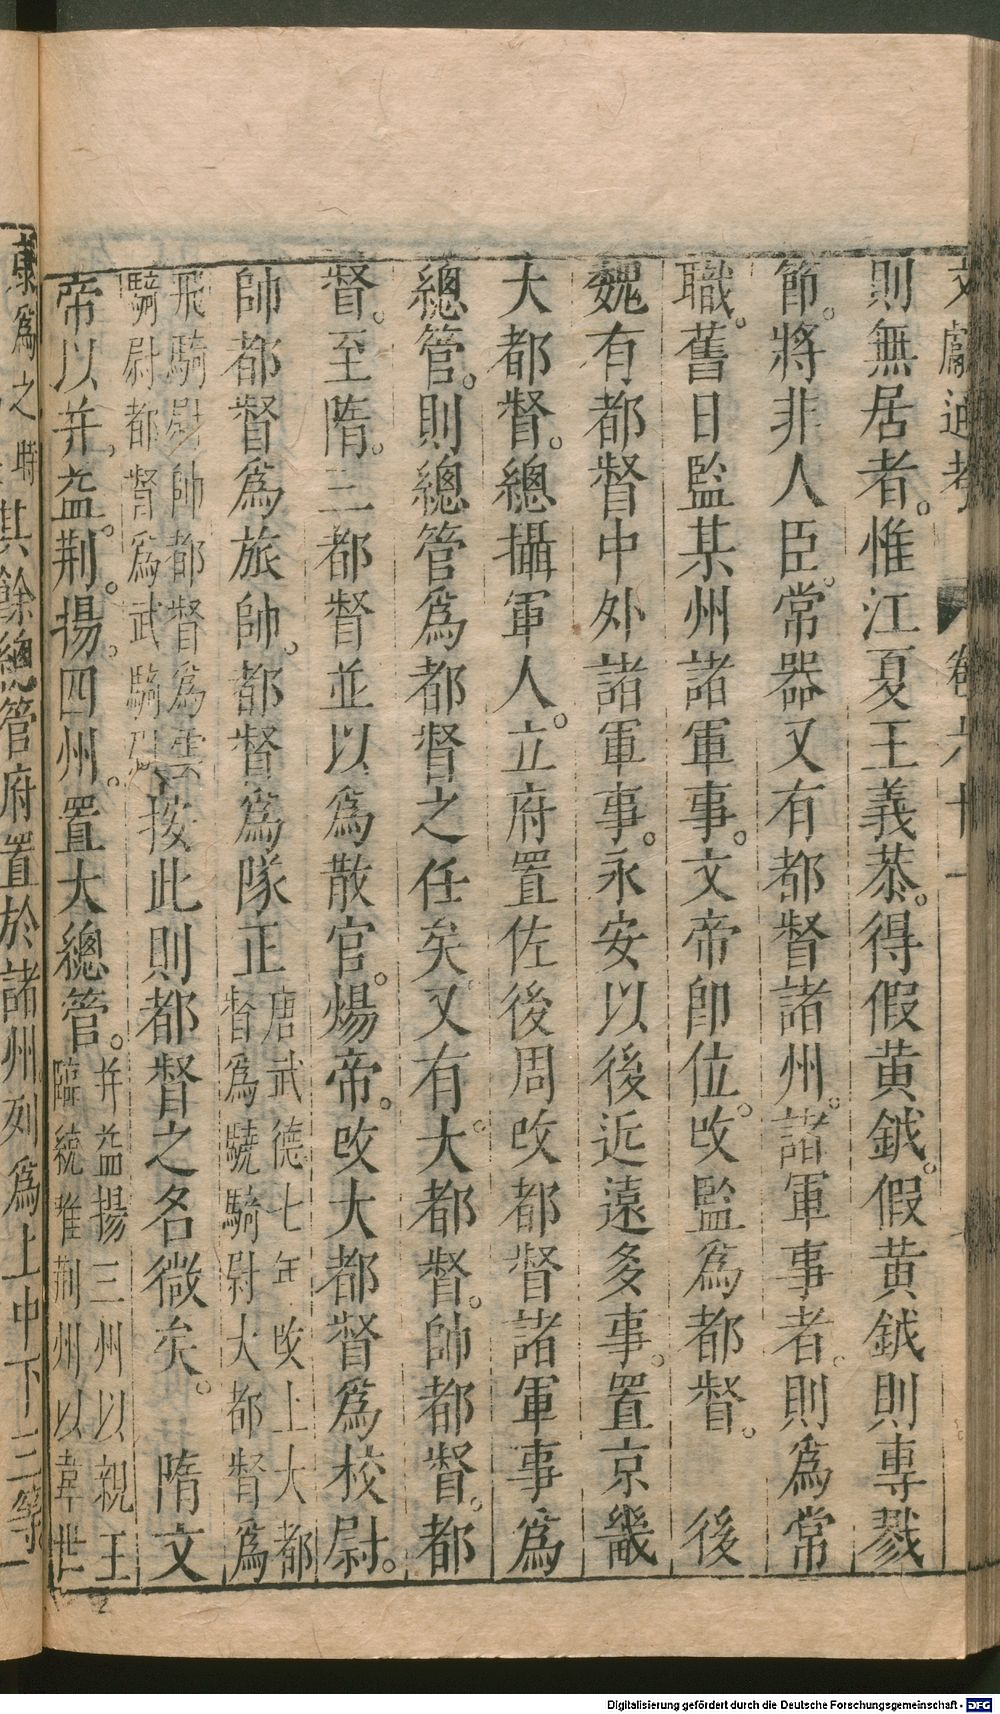 文獻通考 卷六十一
則無居者。惟江夏王義恭。得假黄鉞。假黄鉞則專戮
節。將非人臣。常器又有都督諸州。諸軍事者。則爲常
職。舊日監某州諸軍事。文帝卽位。改監爲都督。 後
魏有都督中外諸軍事。永安以後近遠多事。置京畿
大都督。總攝軍人。立府置佐後周改都督諸軍事爲
總管。則總管爲都督之任矣。又有。大都督。帥都督。都
督。至隋。三都督並以爲散官。煬帝。改大都督爲校尉。
帥都督爲旅帥。都督爲隊正
唐武德七年改上大都
督爲驍騎尉大都督爲
飛騎尉帥都督爲雲
騎尉都督爲武騎尉
按此則都督之名微矣。 隋文
帝以并。益。荆。揚。四州。置大總管。
并益揚三州以親王
臨統惟荆州以韋世
康爲之時
其餘總管府置於諸州列爲上中下三等
Digitalisierung gefördert durch die Deutsche Forschungsgemeinschaft - DFG